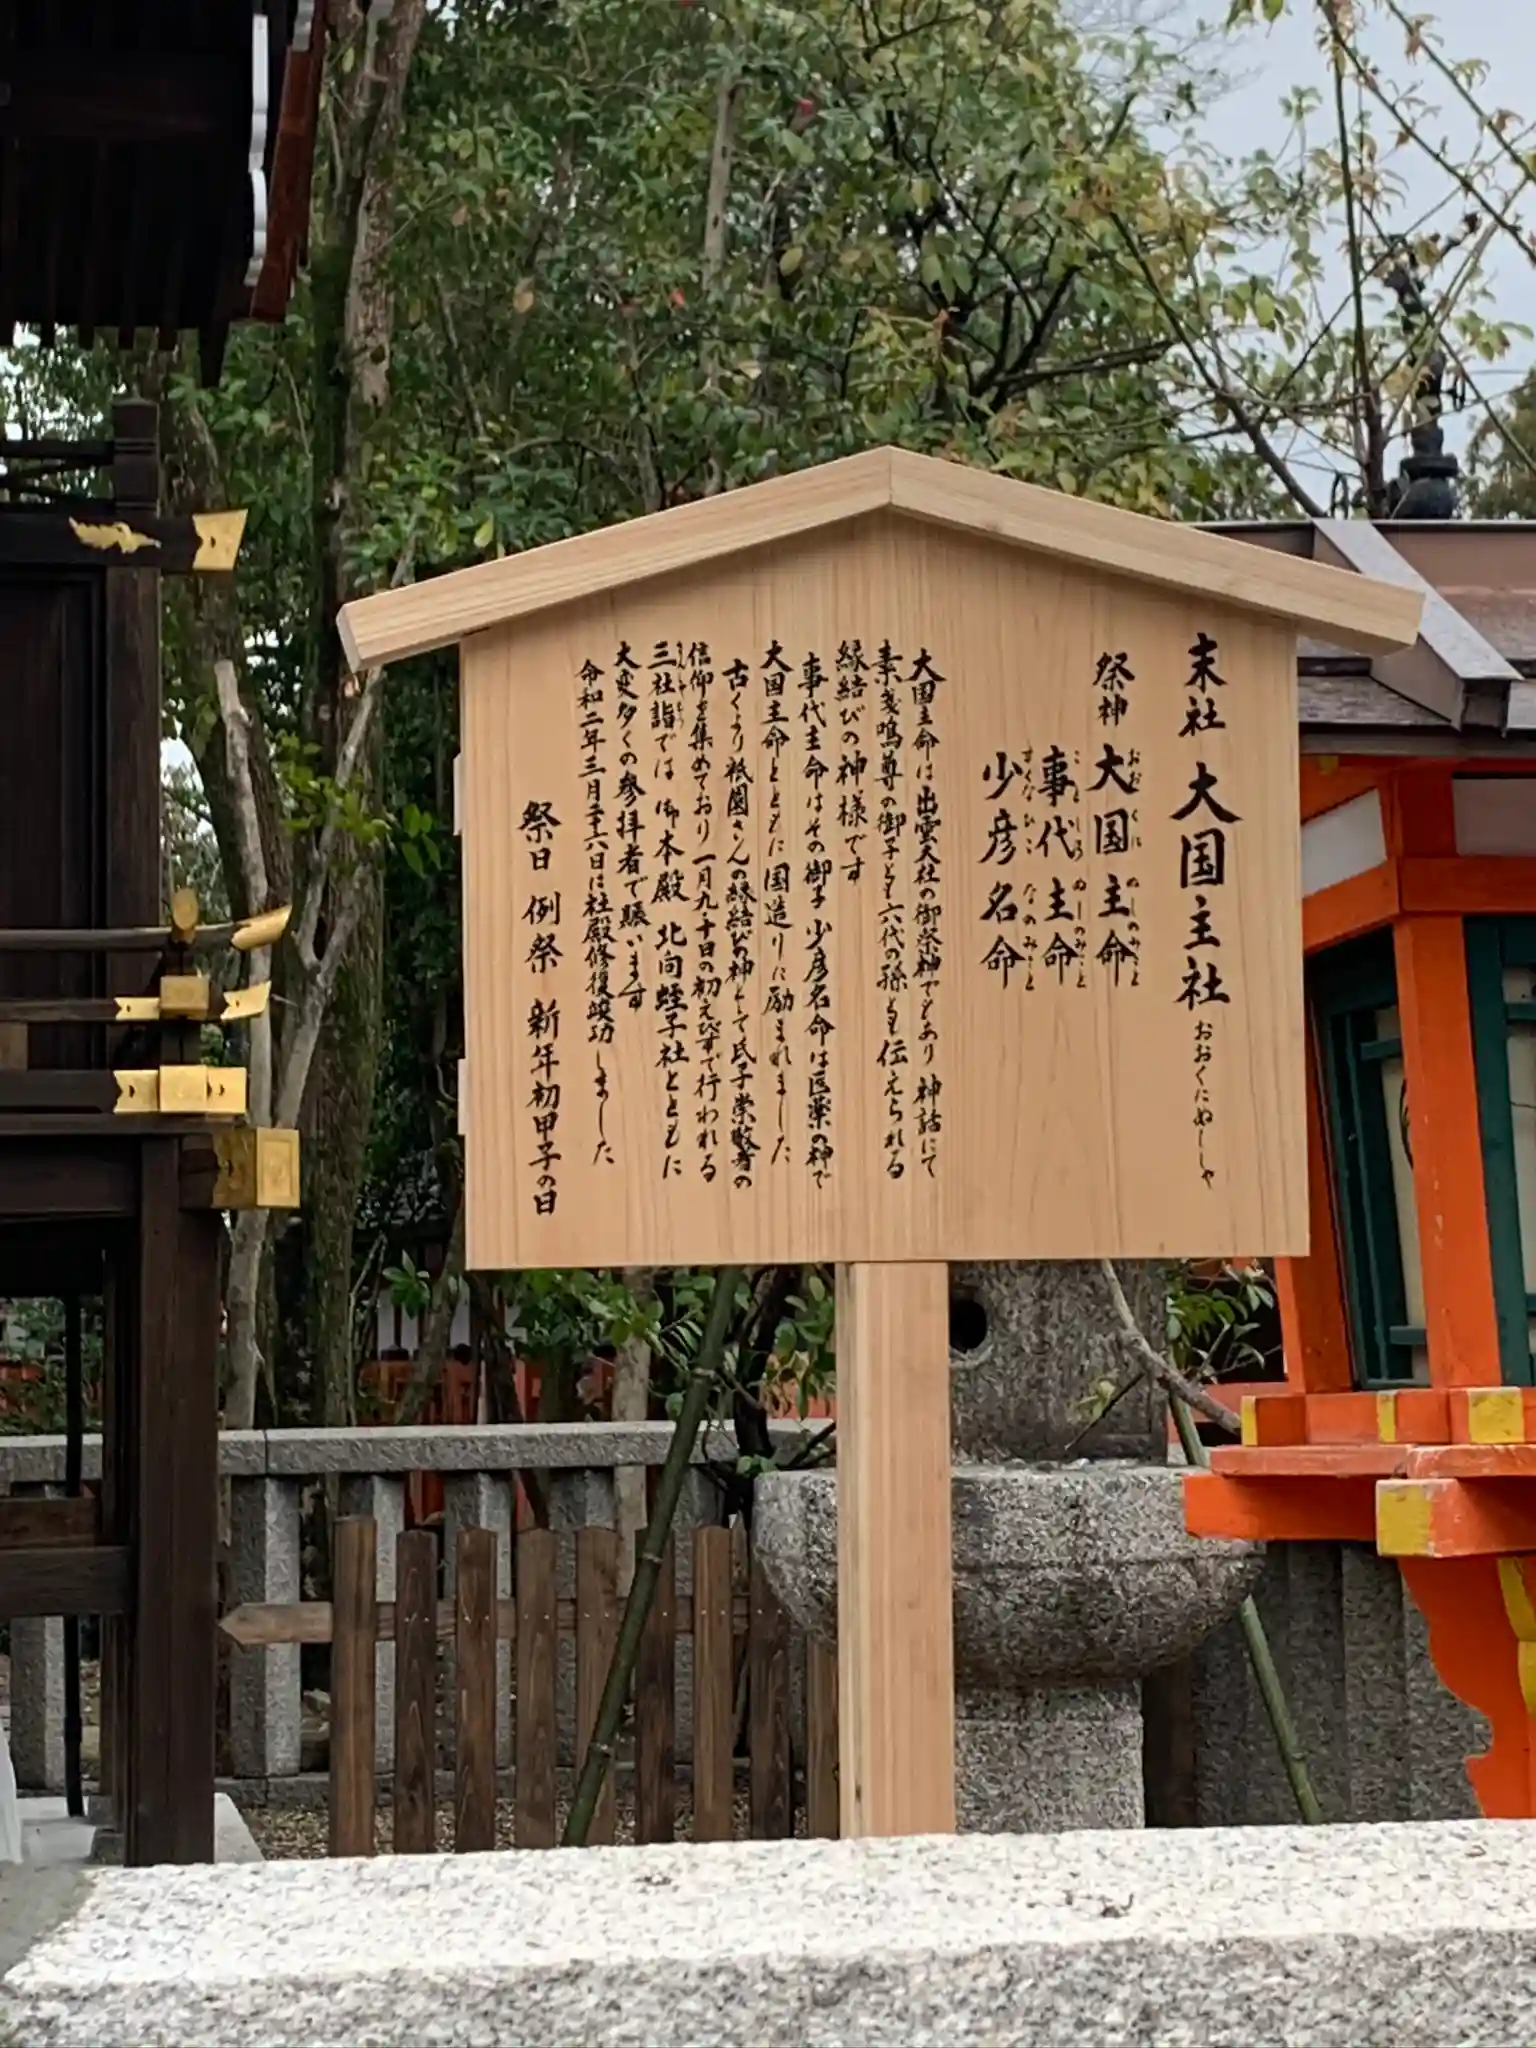 末社 大国主社 おおくにぬしゃ
祭神 大国主命 おおくにのしのみこと
事代主命 ことしろぬしのみこと
少彦名命 すくなひこなのみこと
大国主命は出雲大社の御祭神でもあり 神話にて
素戔嗚尊の御子とも六代の孫とも伝えられる
縁結びの神様です
事代主命はその御子 少彦名命は医薬の神で
大国主命とともに国造りに励まれました
古くより祇園さんの縁結びの神として氏子崇敬者の
信仰を集めており 一月九、十日の初えびすで行われる
三社詣では 御本殿 北向蛭子社とともに
大変多くの参拝者で賑います
令和二年三月二十六日に社殿修復竣功しました
祭日 例祭 新年初甲子の日